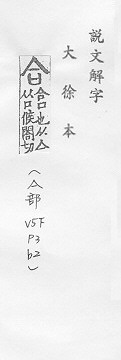 説文解字
大徐本
合
合口也从亼
从口候閤切
(亼部 V5下 P3 b2)